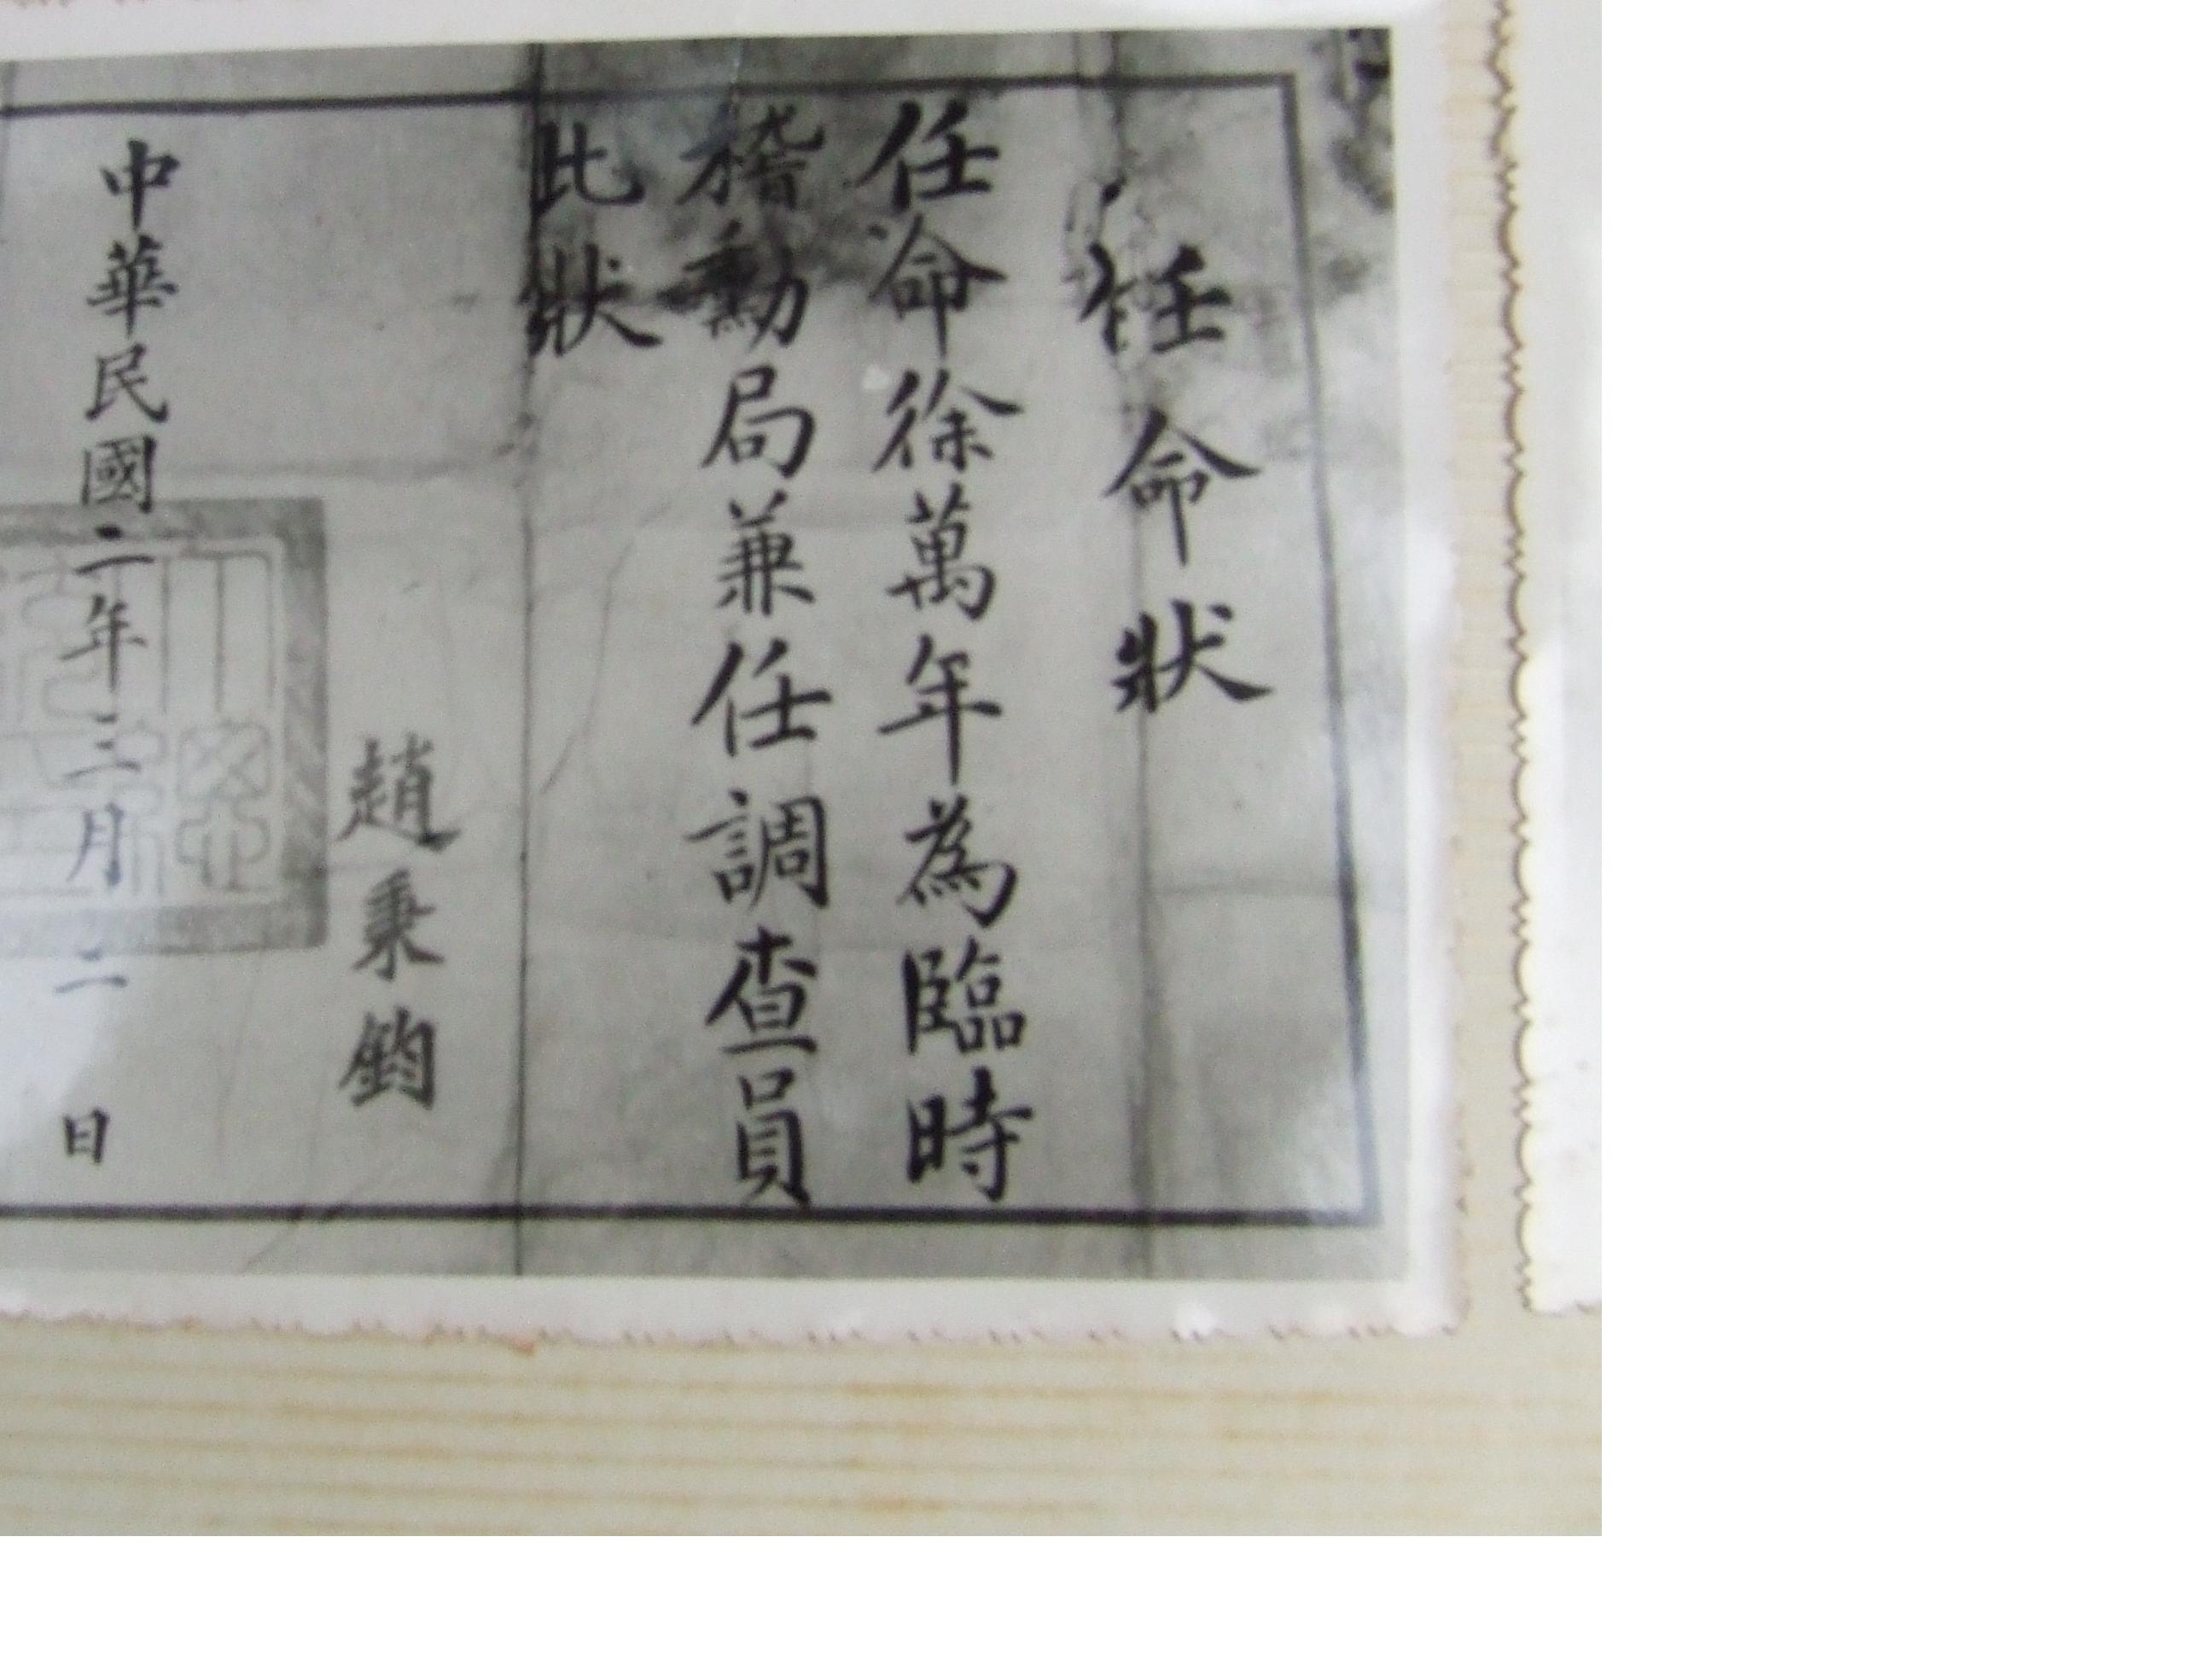 任命狀
任命徐萬年為臨時
稽勳局兼任調查員
此狀
趙秉鈞
中華民國二年三月二日